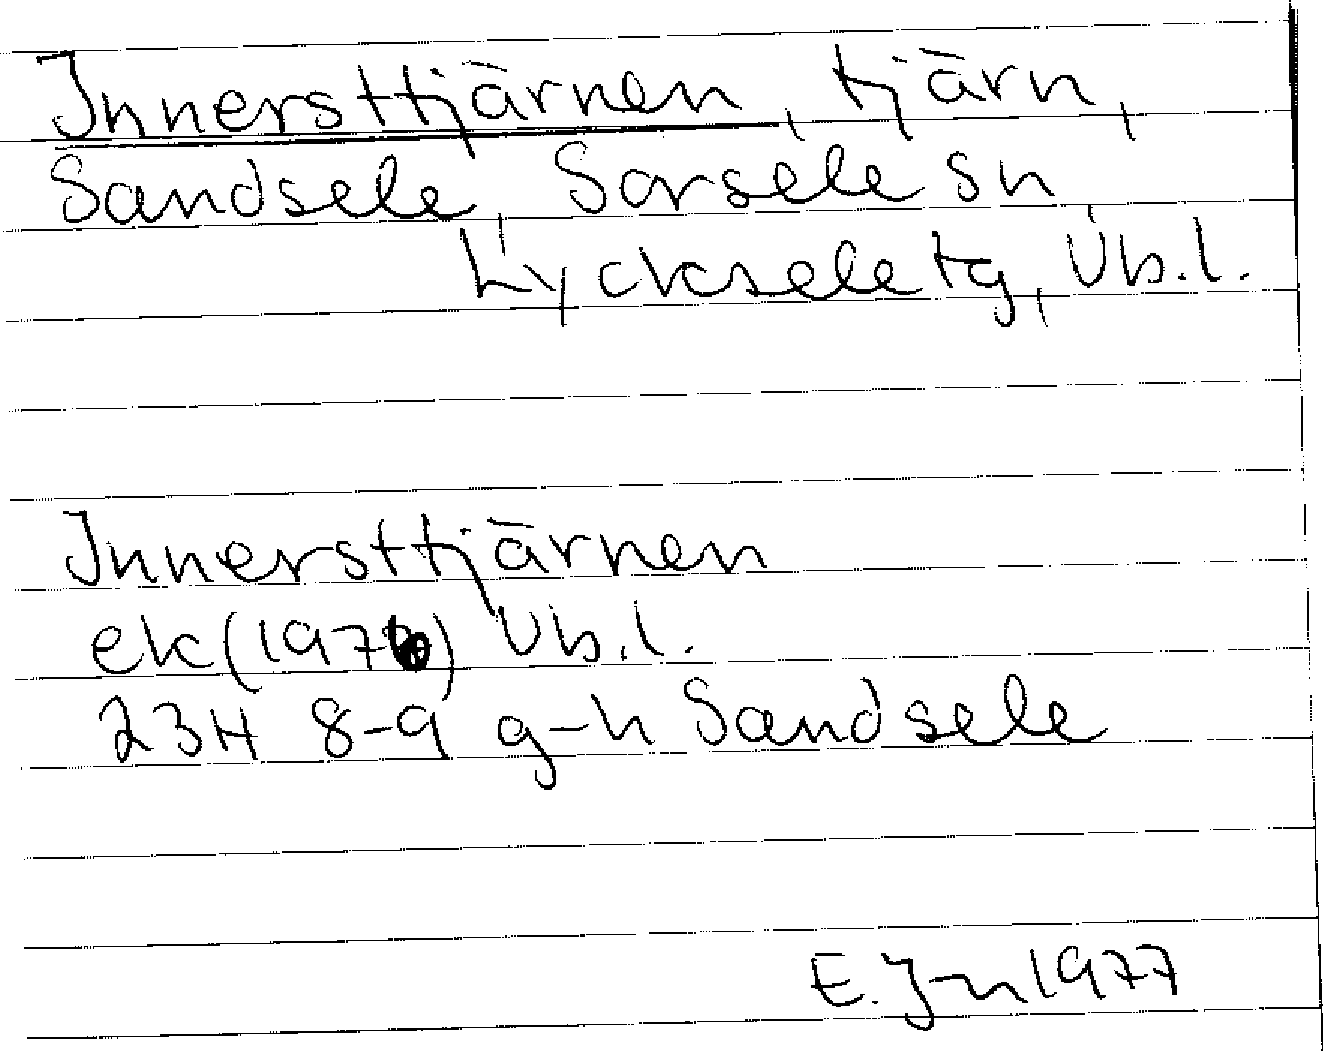 Innersttjärnen, tjärn,
Sandsele, Sorsele sn,
Lycksele tg, Vb.l.
Innersttjärnen
ek(1976) Vb.l.
23H 8-9 g-h Sandsele
E. J-n 1977